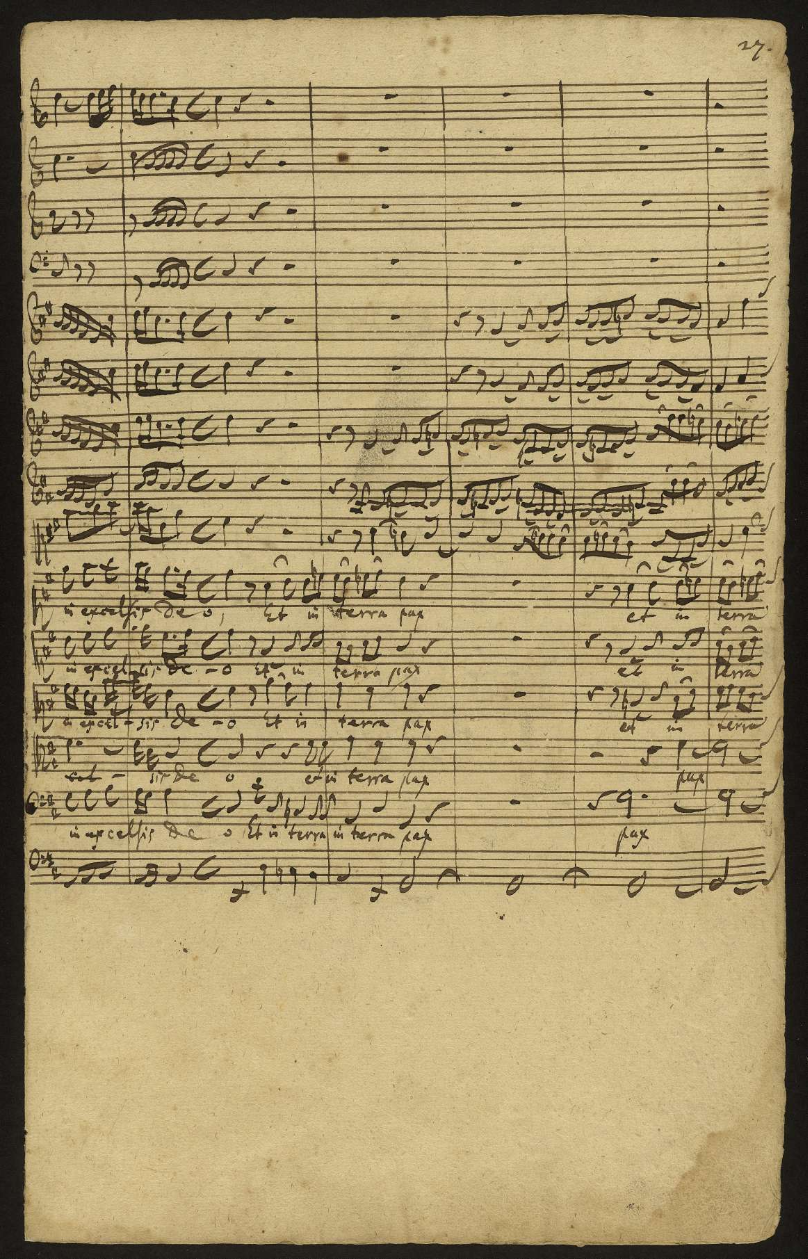 27.
in excelsis deo, Et in terra pax et in terra
in excelsis de - o Et in terra pax et in terra
in excel - sis de - o Et in terra pax et in terra
cel - sis de o et in terra pax pax
in excelsis de o Et in terra in terra pax pax